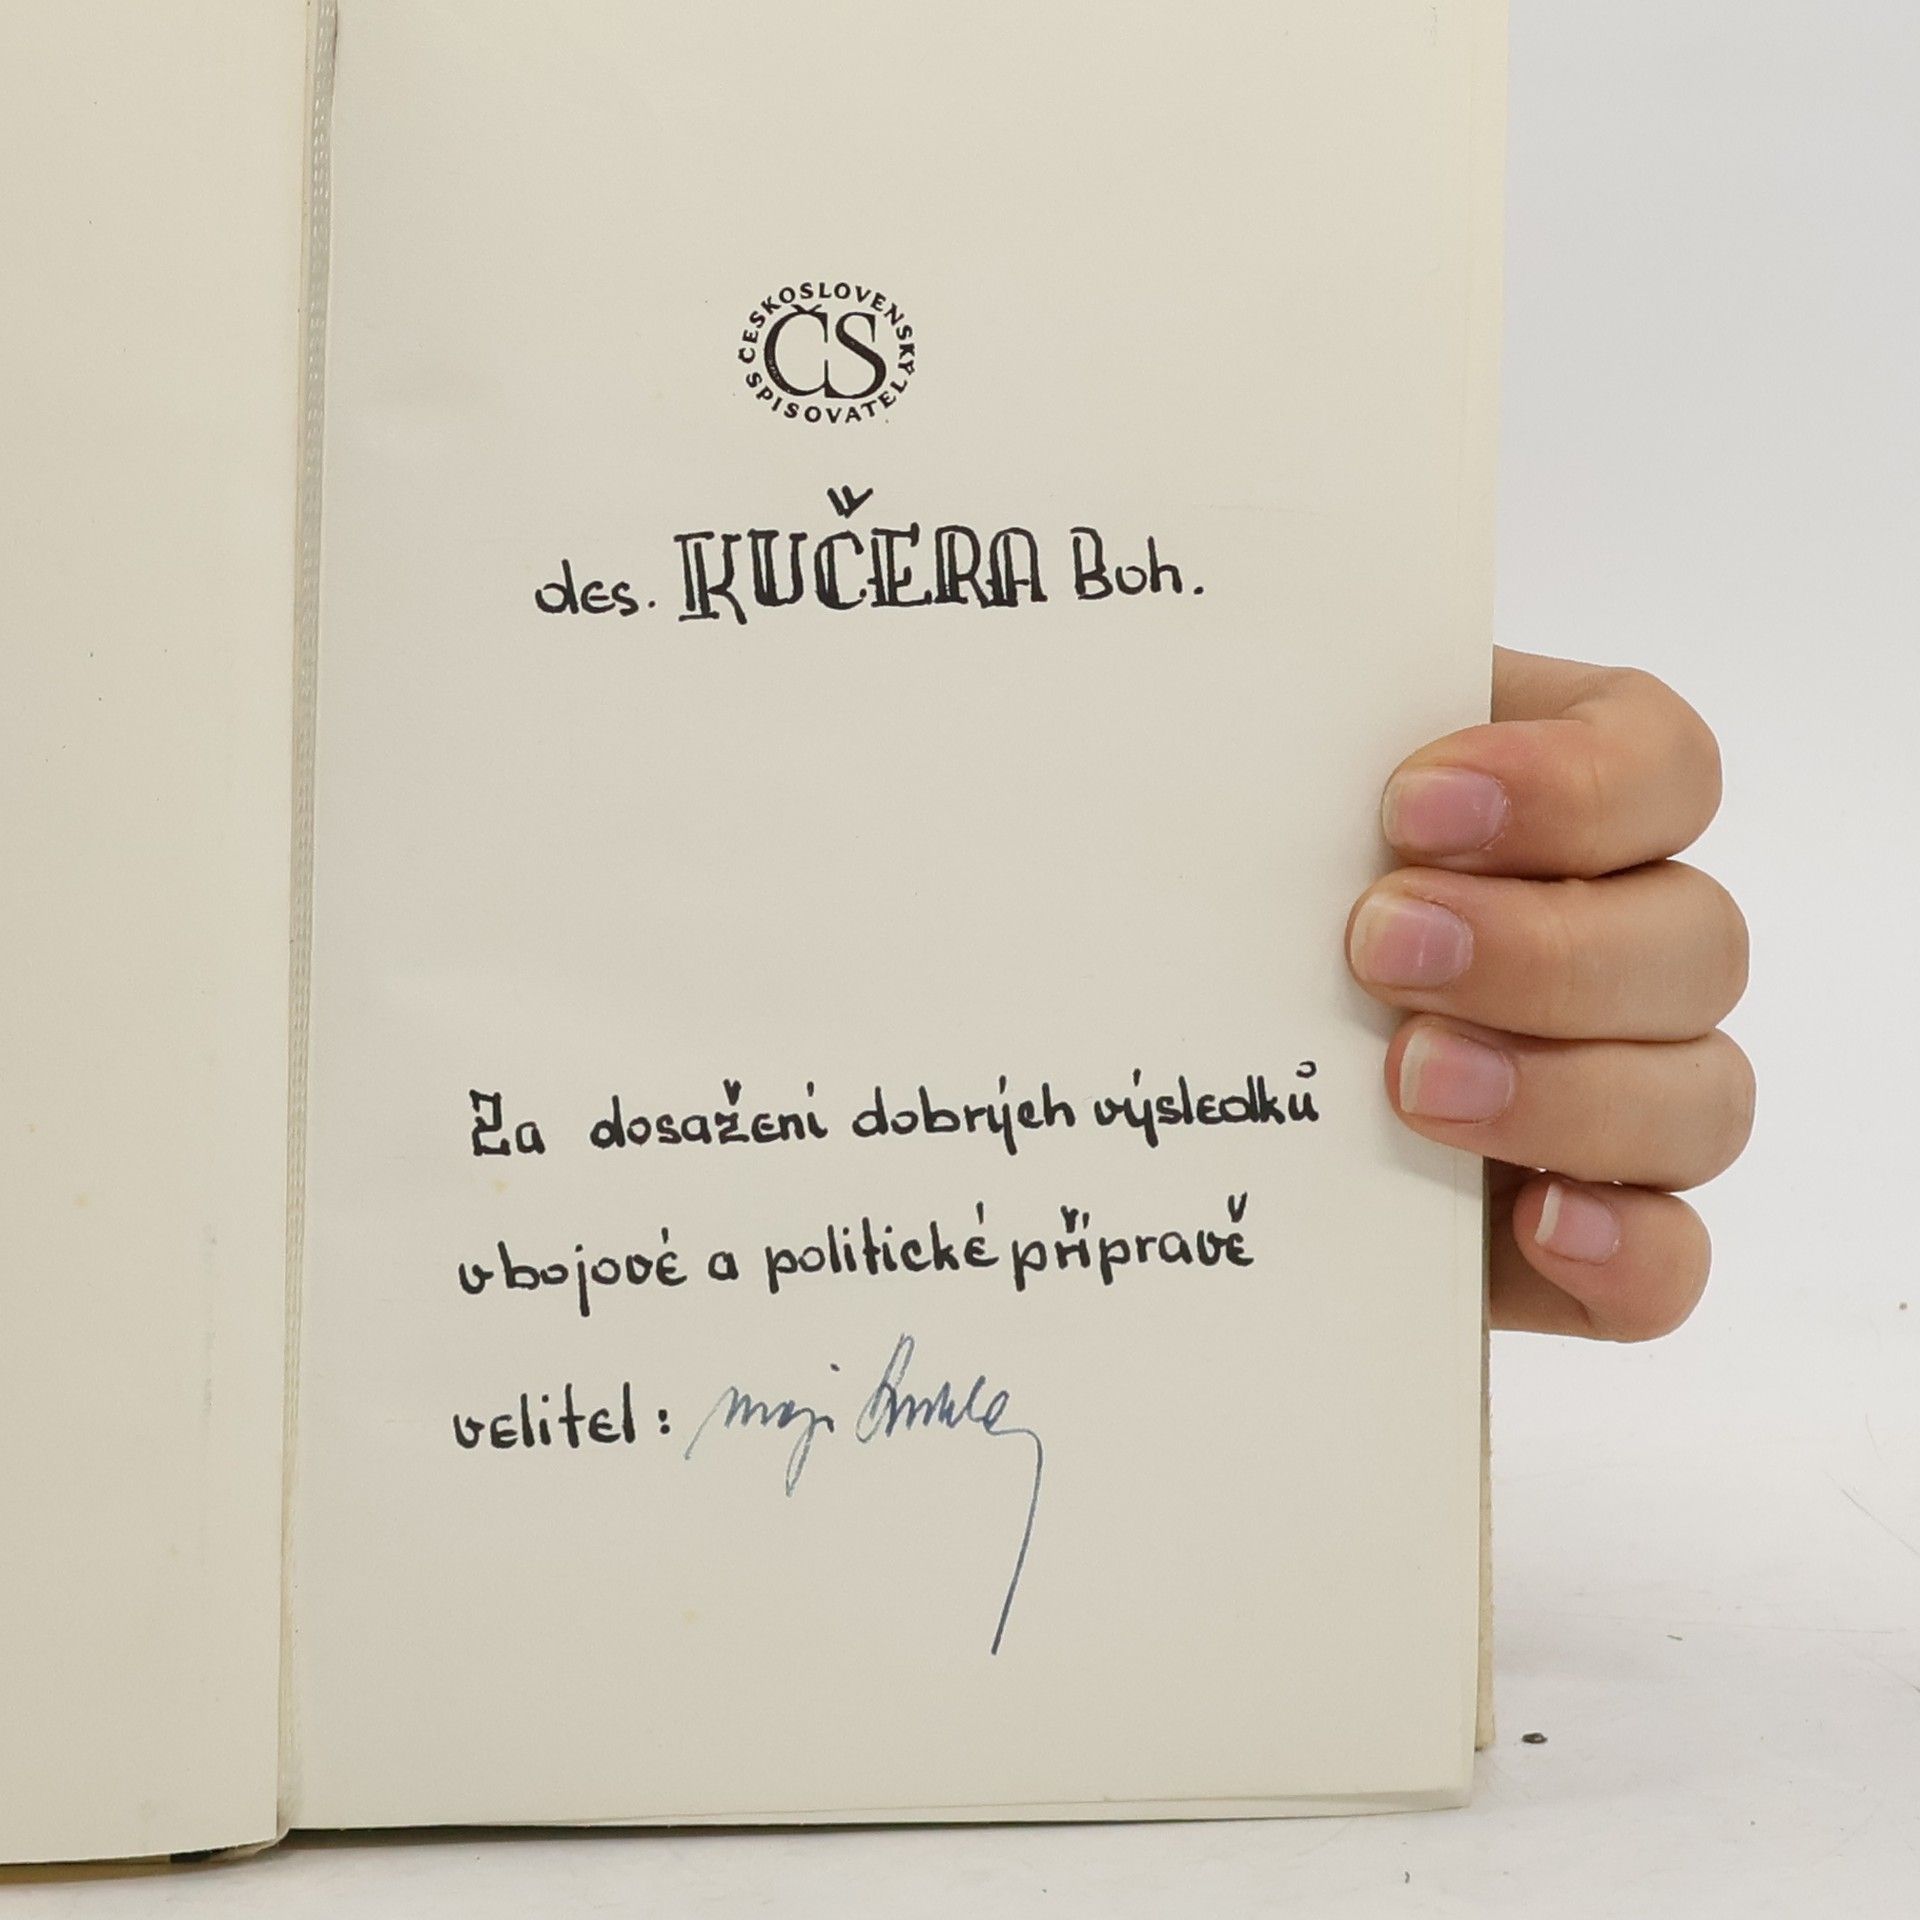 ČESKOSLOVENSKÝ SPISOVATEL
ČS
des. KUČERA Boh.
Za dosažení dobrých výsledků
v bojové a politické přípravě
velitel: